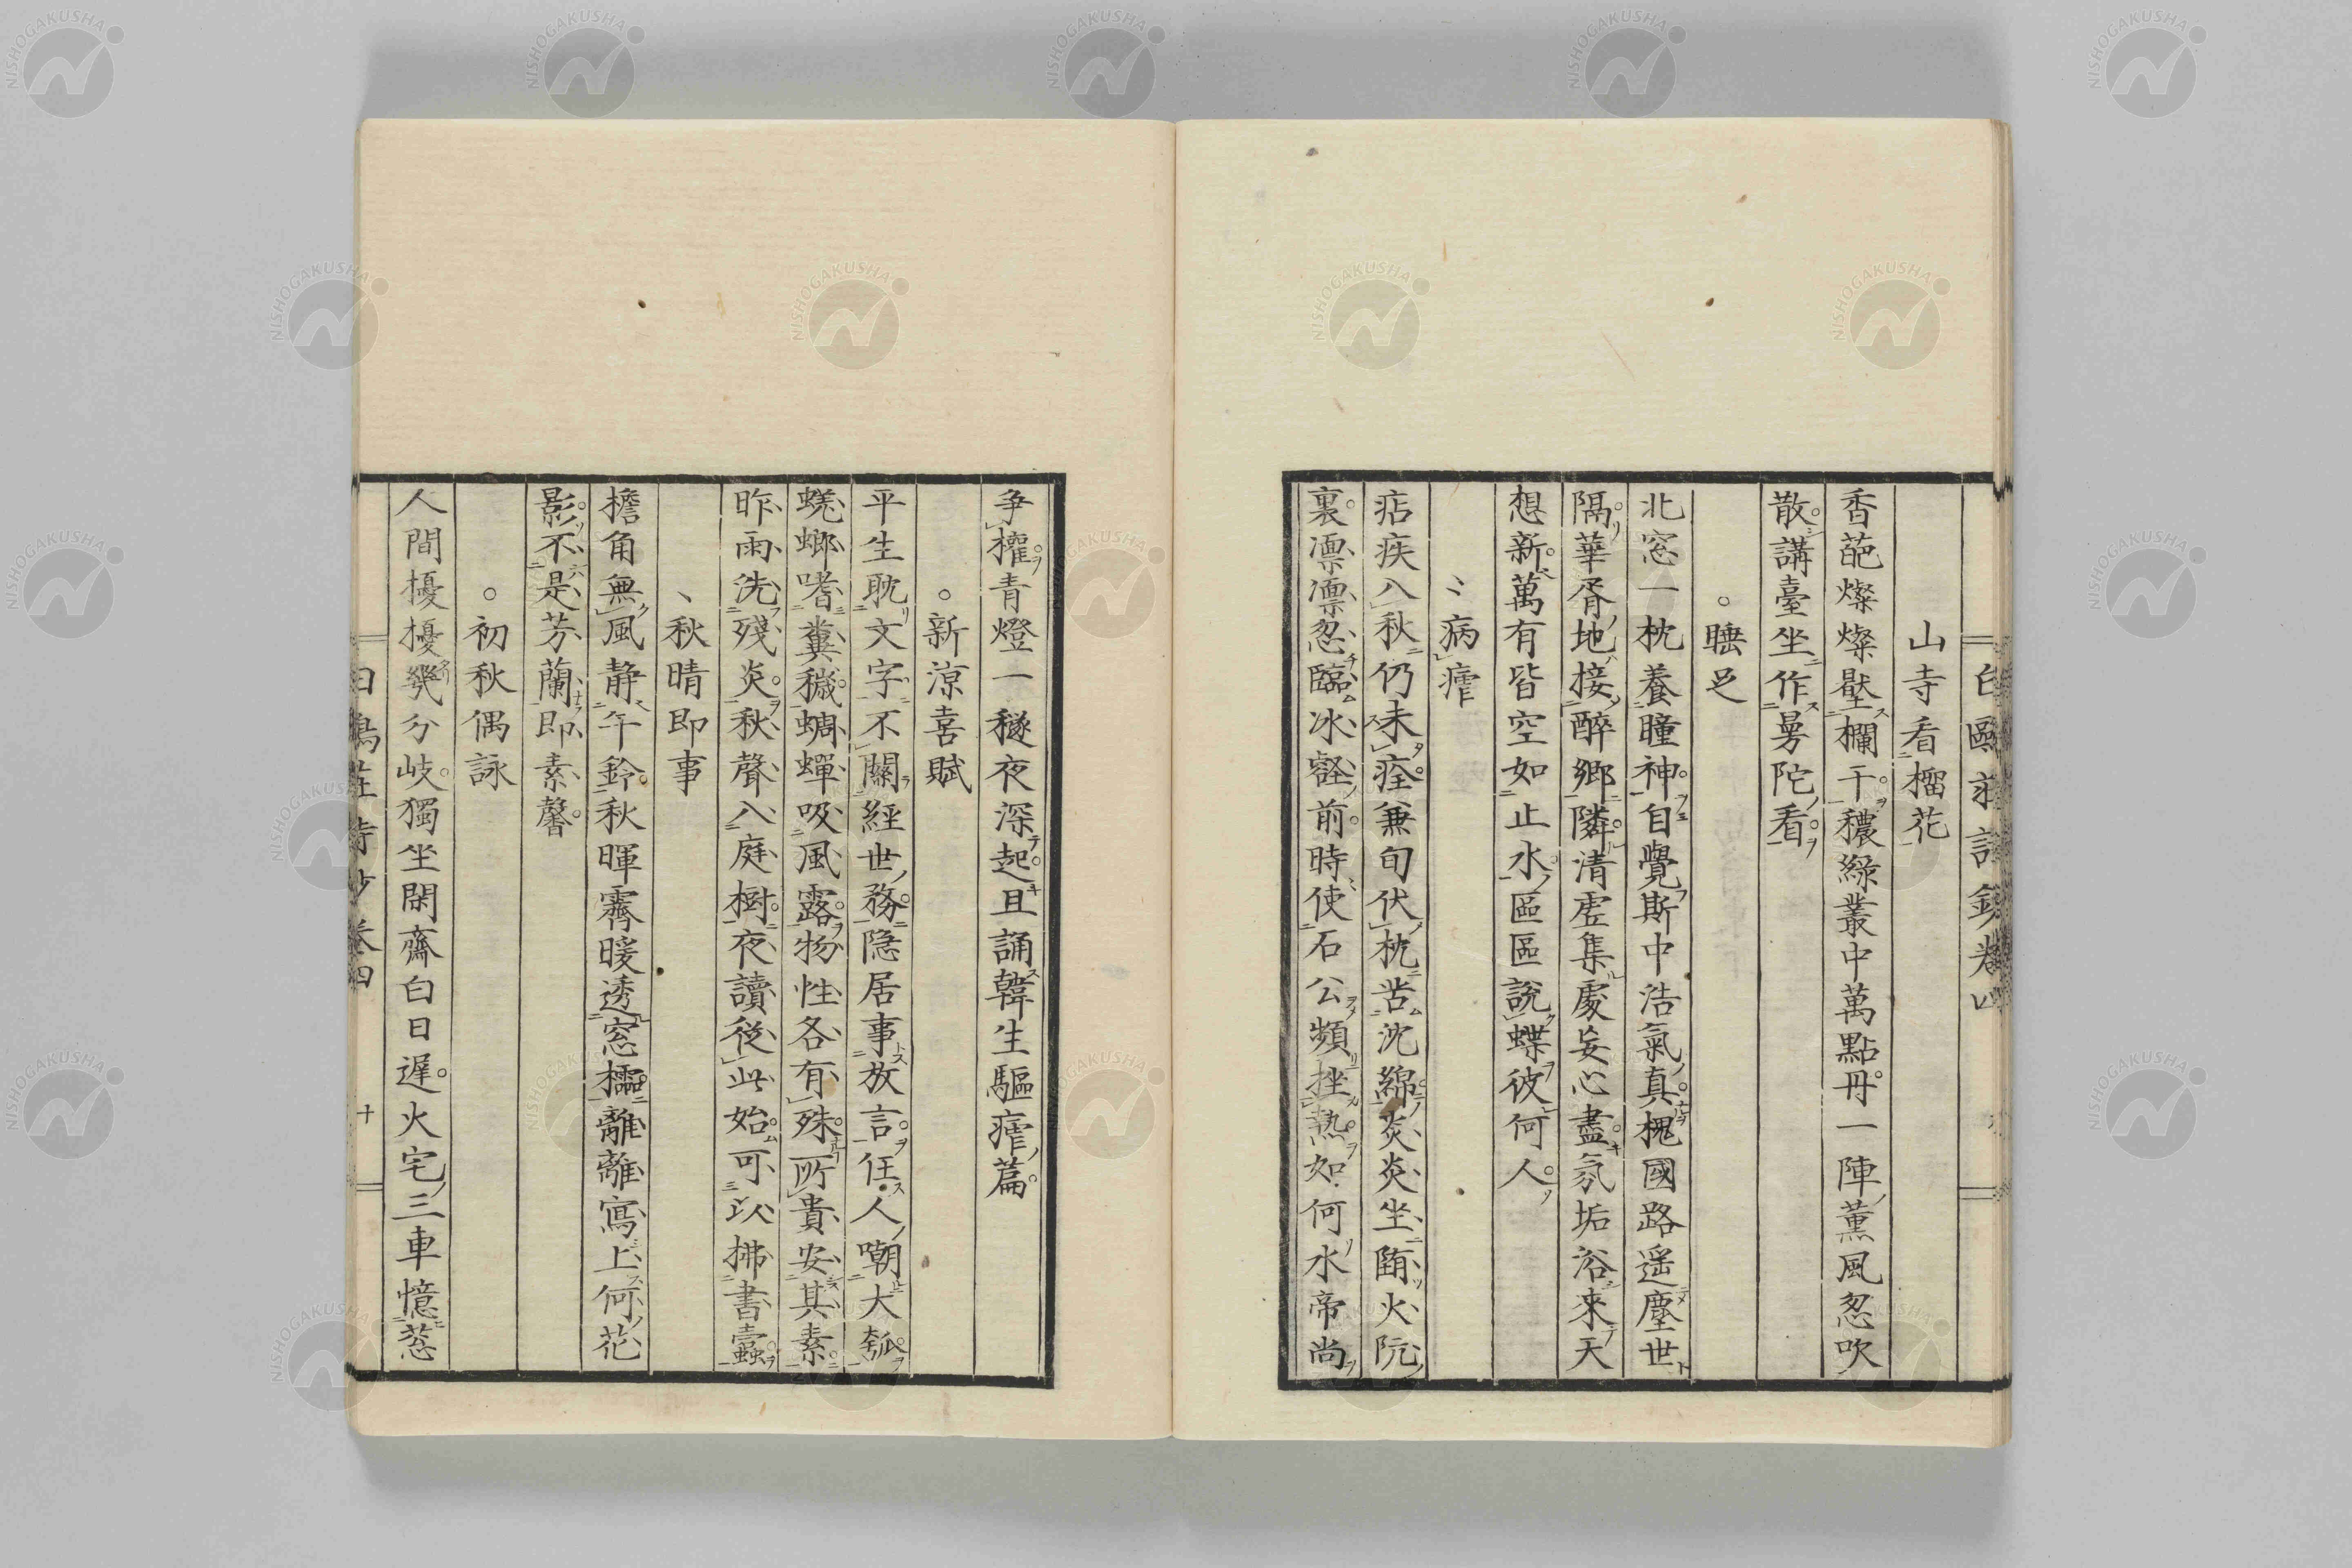 山寺看榴花
香葩燦燦壓欄干穠綠叢中萬點丹一陣薰風忽吹
散講臺坐作曼陀看
睡足
北窓一枕養瞳神自覺斯中浩氣真槐國路遥塵世
隔華胥地接醉鄉隣清虛集處妄心盡氛垢浴來天
想新萬有皆空如止水區區說蝶彼何人
病瘧
痁疾入秋仍未痊兼旬伏枕苦沈綿炎炎坐陷火阬
裏凛凛忽臨冰壑前時使石公頻挫熱如何水帝尚
爭權青燈一穟夜深起且誦韓生驅瘧篇
新凉喜賦
平生耽文字不關經世務隱居事放言任人嘲大瓠
蜣螂嗜糞穢蜩蟬吸風露物性各有殊所貴安其素
昨雨洗殘炎秋聲入庭樹夜讀從此始可以拂書蠧
秋晴即事
檐角無風静午鈴秋暉霽暖透窓櫺離離寫上何花
影不是芳蘭即素馨
初秋偶詠
人間擾擾幾分岐獨坐閑齋白日遲火宅三車憶慈
白鷗莊詩鈔卷四
十